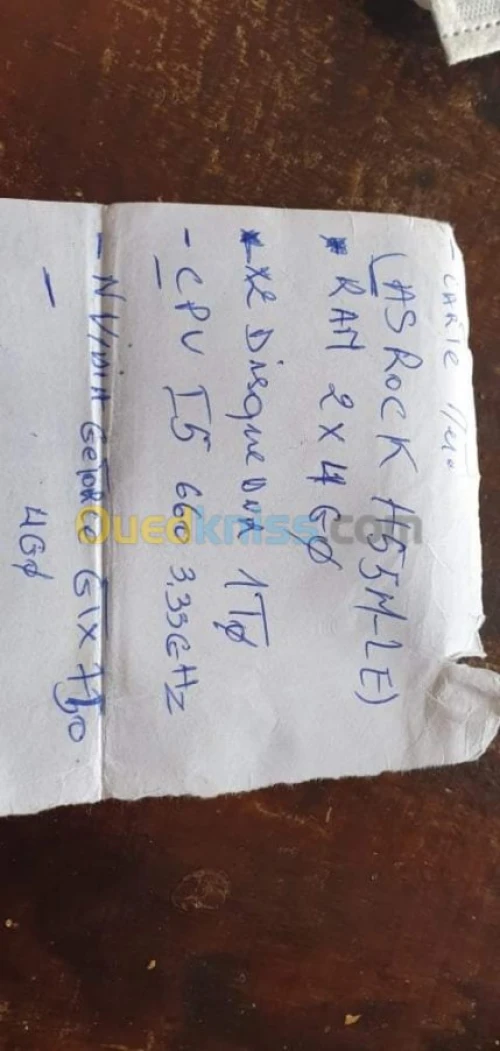 - CARTE Mere
(ASROCK H55M-LE)
* RAM 2 x 4 Go
- Disque Dur 1To
- CPU I5 660 3.33GHz
- NVIDIA GeForce GTX 750
4Go
Ouedkniss.com